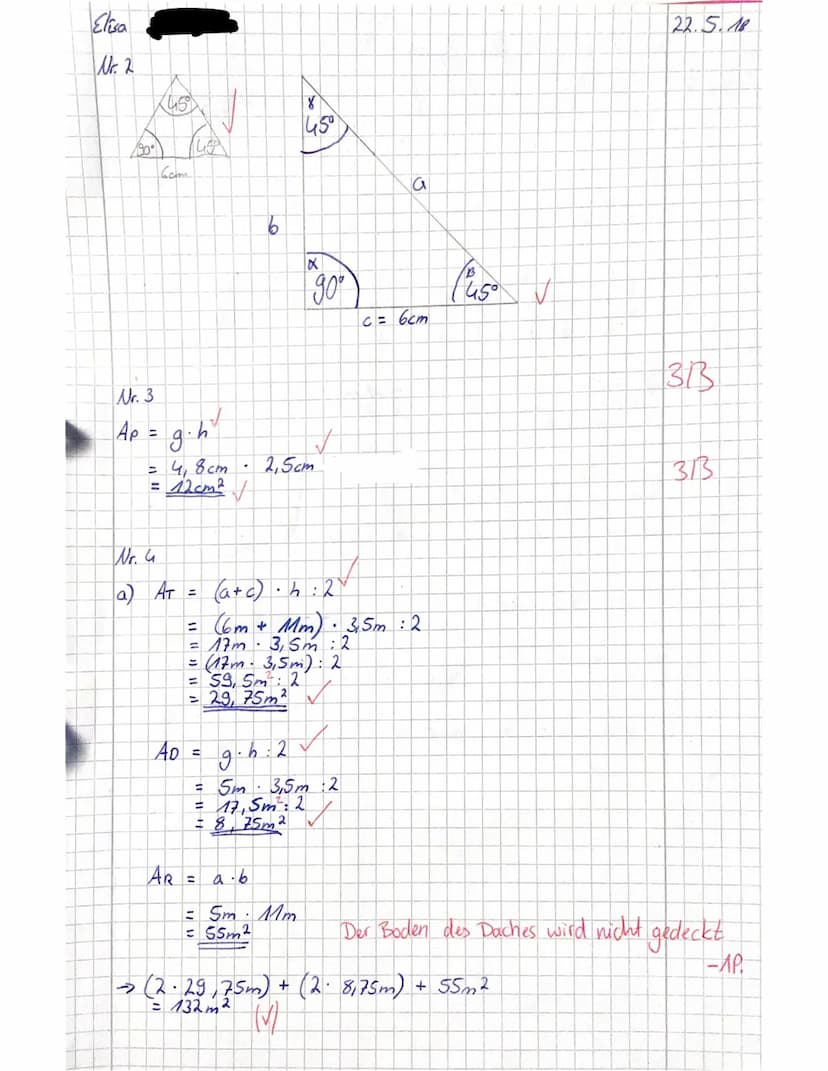 Elisa
22.5.18
Nr. 2
45°
90°
45°
6cm
γ
45°
a
b
α
90°
β
45°
c = 6cm
3/3
Nr. 3
AP = g·h
= 4,8cm · 2,5cm
= 12cm²
3/3
Nr. 4
a) AT = (a+c) · h : 2
= (6m + 11m) · 3,5m : 2
= 17m · 3,5m : 2
= (17m · 3,5m) : 2
= 59,5m² : 2
= 29,75m²
AD = g·h:2
= 5m · 3,5m : 2
= 17,5m² : 2
= 8,75m²
AR = a·b
= 5m · 11m
= 55m²
Der Boden des Daches wird nicht gedeckt
-1P.
→ (2·29,75m) + (2· 8,75m) + 55m²
= 132m²
(✓)